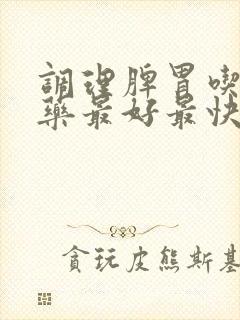 調理脾胃喫
藥最好最快
貪玩皮熊斯基